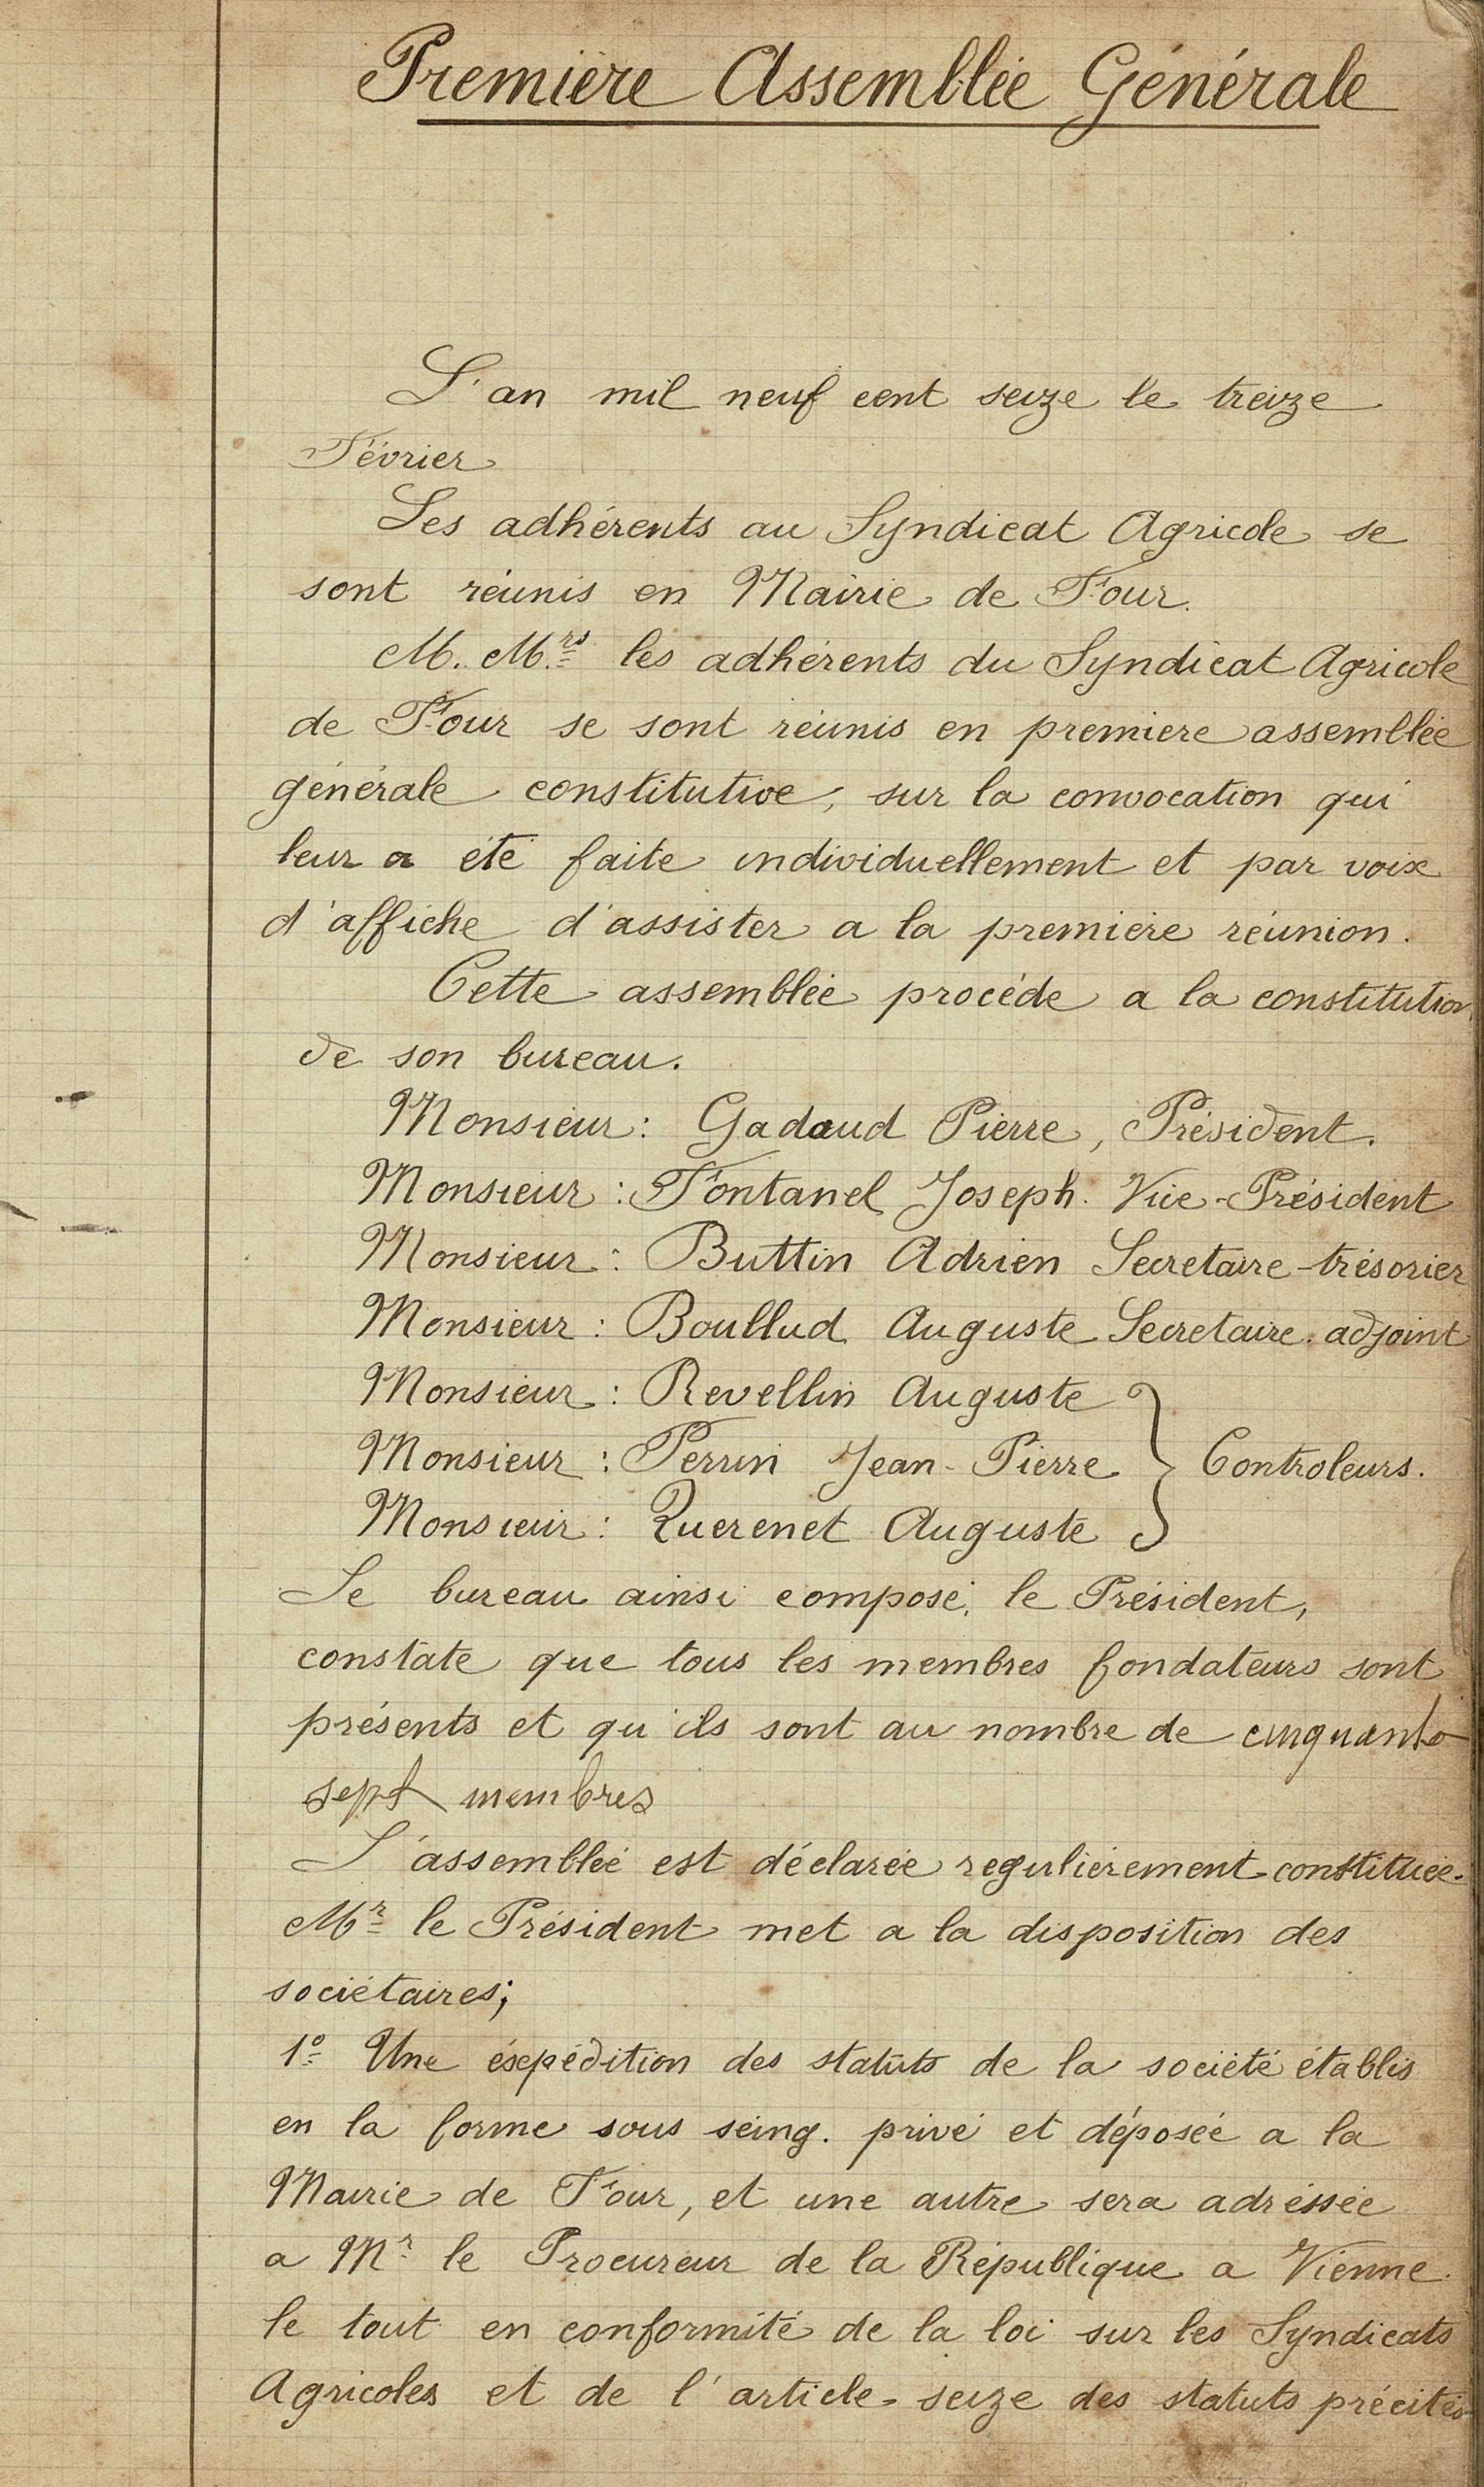 Première Assemblée Générale
L'an mil neuf cent seize le treize
Février
Les adhérents au Syndicat Agricole se
sont réunis en Mairie de Four.
M. M.rs les adhérents du Syndicat Agricole
de Four se sont réunis en premiere assemblée
générale constitutive, sur la convocation qui
leur a été faite individuellement et par voix
d'affiche d'assister a la première réunion.
Cette assemblée procéde a la constitution
de son bureau.
Monsieur : Gadaud Pierre, Président.
Monsieur : Fontanel Joseph. Vice-Président
Monsieur : Buttin Adrien Secretaire-trésorier
Monsieur : Boullud Auguste Secretaire. adjoint
Monsieur : Revellin Auguste
Monsieur : Perrin Jean-Pierre } Controleurs.
Monsieur : Querenet Auguste
Le bureau ainsi composé, le Président,
constate que tous les membres fondateurs sont
présents et qu'ils sont au nombre de cinquante
sept membres
L'assemblée est déclarée regulièrement constituée.
Mr le Président met a la disposition des
sociétaires;
1o Une éxpédition des statuts de la société établis
en la forme sous seing. privé et déposée a la
Mairie de Four, et une autre sera adréssée
a Mr le Procureur de la République a Vienne.
le tout en conformité de la loi sur les Syndicats
Agricoles et de l'article seize des statuts précités